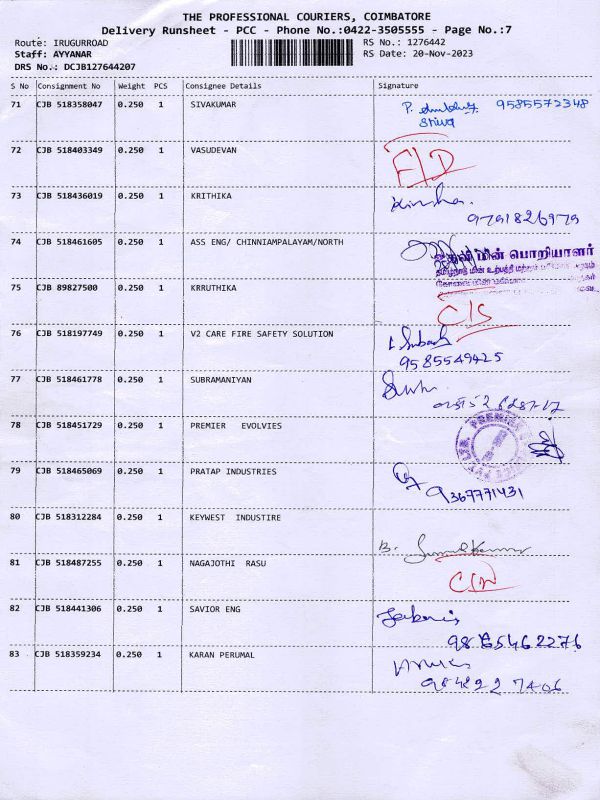 THE PROFESSIONAL COURIERS, COIMBATORE
Delivery Runsheet - PCC - Phone No.:0422-3505555 - Page No.:7
Route: IRUGURROAD RS No.: 1276442
Staff: AYYANAR RS Date: 20-Nov-2023
DRS No.: DCJB127644207
S No Consignment No Weight PCS Consignee Details Signature
71 CJB 518358047 0.250 1 SIVAKUMAR 9585572348
72 CJB 518403349 0.250 1 VASUDEVAN
73 CJB 518436019 0.250 1 KRITHIKA
9791826979
74 CJB 518461605 0.250 1 ASS ENG/ CHINNIAMPALAYAM/NORTH
மின் பொறியாளர்
75 CJB 89827500 0.250 1 KRRUTHIKA
76 CJB 518197749 0.250 1 V2 CARE FIRE SAFETY SOLUTION
9585549425
77 CJB 518461778 0.250 1 SUBRAMANIYAN
78 CJB 518451729 0.250 1 PREMIER EVOLVIES
79 CJB 518465069 0.250 1 PRATAP INDUSTRIES
9367771431
80 CJB 518312284 0.250 1 KEYWEST INDUSTIRE
81 CJB 518487255 0.250 1 NAGAJOTHI RASU
82 CJB 518441306 0.250 1 SAVIOR ENG
83 CJB 518359234 0.250 1 KARAN PERUMAL